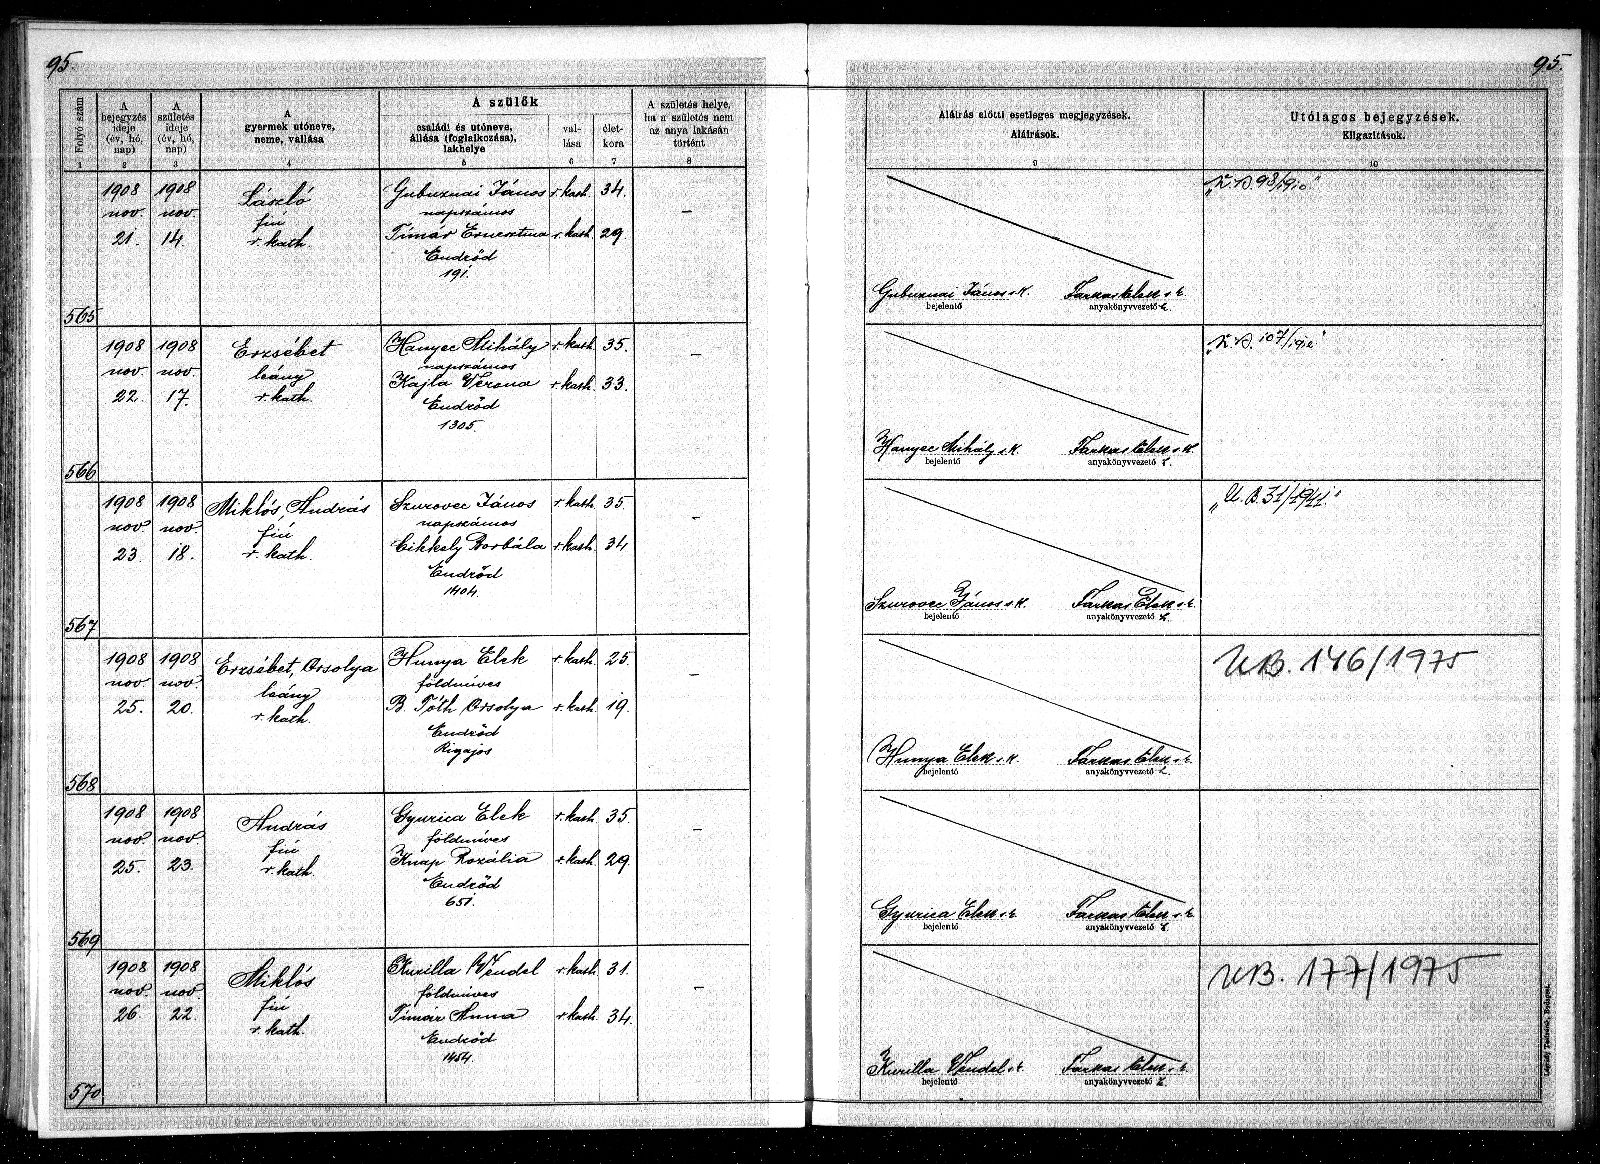 95.
95.
Folyó szám
A bejegyzés ideje (év, hó, nap)
A születés ideje (év, hó, nap)
A gyermek utóneve, neme, vallása
A szülők
családi és utóneve, állása (foglalkozása), lakhelye
vallása
életkora
A születés helye, ha a születés nem az anya lakásán történt
Aláírás előtti esetleges megjegyzések. Aláírások.
Utólagos bejegyzések. Kiigazítások.
1 2 3 4 5 6 7 8 9 10
565
1908 nov. 21.
1908 nov. 14.
László
fiú
r. kath.
Gubuznai János r. kath. 34.
napszámos
Tímár Ernesztina r. kath. 29
Endrőd
191.
–
Gubuznai János s. k.
bejelentő
Farkas Elek s. k.
anyakönyvvezető
98/910
566
1908 nov. 22.
1908 nov. 17.
Erzsébet
leány
r. kath.
Hanyec Mihály r. kath. 35.
napszámos
Kajla Verona r. kath. 33.
Endrőd
1305.
–
Hanyec Mihály s. k.
bejelentő
Farkas Elek s. k.
anyakönyvvezető
107/910
567
1908 nov. 23.
1908 nov. 18.
Miklós, András
fiú
r. kath.
Szurovec János r. kath. 35
napszámos
Cikkely Borbála r. kath. 34
Endrőd
1404.
–
Szurovec János s. k.
bejelentő
Farkas Elek s. k.
anyakönyvvezető
„U. B. 31/1941"
568
1908 nov. 25.
1908 nov. 20.
Erzsébet, Orsolya
leány
r. kath.
Hunya Elek r. kath. 25.
földmíves
B. Tóth Orsolya r. kath. 19.
Endrőd
Rigajos
–
Hunya Elek s. k.
bejelentő
Farkas Elek s. k.
anyakönyvvezető
UB. 146/1975
569
1908 nov. 25.
1908 nov. 23.
András
fiú
r. kath.
Gyurica Elek r. kath. 35.
földmíves
Knap Rozália r. kath. 29
Endrőd
651.
–
Gyurica Elek s. k.
bejelentő
Farkas Elek s. k.
anyakönyvvezető
570
1908 nov. 26.
1908 nov. 22
Miklós
fiú
r. kath.
Kurilla Vendel r. kath. 31.
földmíves
Tímár Anna r. kath. 34.
Endrőd
1454.
–
Kurilla Vendel s. k.
bejelentő
Farkas Elek s. k.
anyakönyvvezető
UB. 177/1975